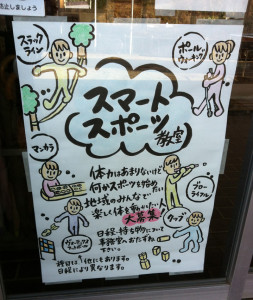 防止しましょう
スラックライン
ポールウォーキング
スマート
スポーツ
教室
マッカラ
体力はあまりないけど
何かスポーツを始めたい
地域のみんなで
楽しく体を動かしたい人
大募集
ブロー
ライフル
タップ
日程・持ち物について
事務室へおたずね
下さい。
種目は他にもあります。
日程により異なります。